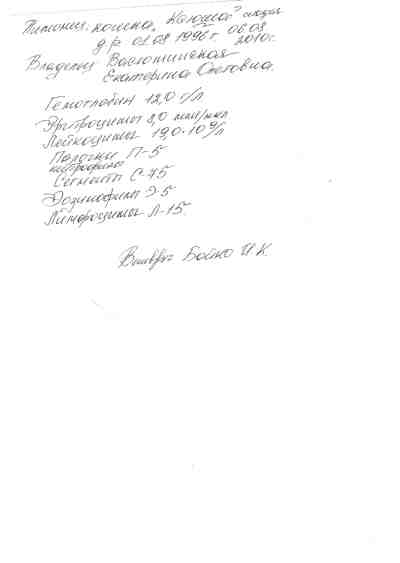 Питомица: кошка "Катюша"
д/р 01.08 1996 г. 06.08 2010 г.
Владелец Васютинская
Екатерина Олеговна.
Гемоглобин 12,0 г/л
Эритроциты 8,0 млн/мкл
Лейкоциты 19,0·10 9/л
Палочки П-5
нейтрофилы
Сегменты С-75
Эозинофилы Э-5
Лимфоциты Л-15.
Ветврач Бойко И.К.